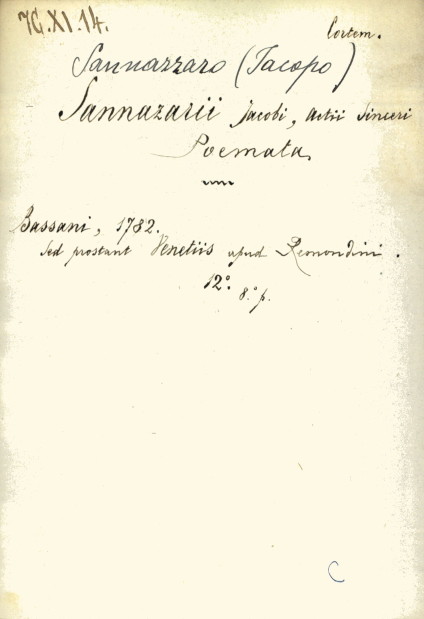 7G.XI.14.
Cortem.
Sannazzaro (Jacopo)
Sannazarii Jacobi, Actii Sinceri
Poemata
Bassani, 1782.
Sed prostant Venetiis apud Remondini.
12°.
8.° p.
C